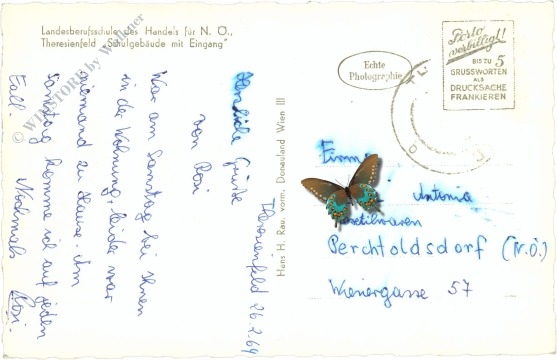 Landesberufsschule des Handels für N. Ö.,
Theresienfeld „Schulgebäude mit Eingang"
© WINSTORE by Wallner
Theresienfeld 26.2.64
Herzliche Grüße
von Rosi
War am Samstag bei Ihnen
in der Wohnung, leider war
niemand zu Hause. Am
Samstag komme ich auf jeden
Fall. Nochmals Rosi.
Hans H. Rau, vorm. Donauland Wien III
Echte
Photographie
Porto
verbilligt!
BIS ZU 5
GRUSSWORTEN
ALS
DRUCKSACHE
FRANKIEREN
Firma
Antonia
Perchtoldsdorf (N.Ö.)
Wienergasse 57